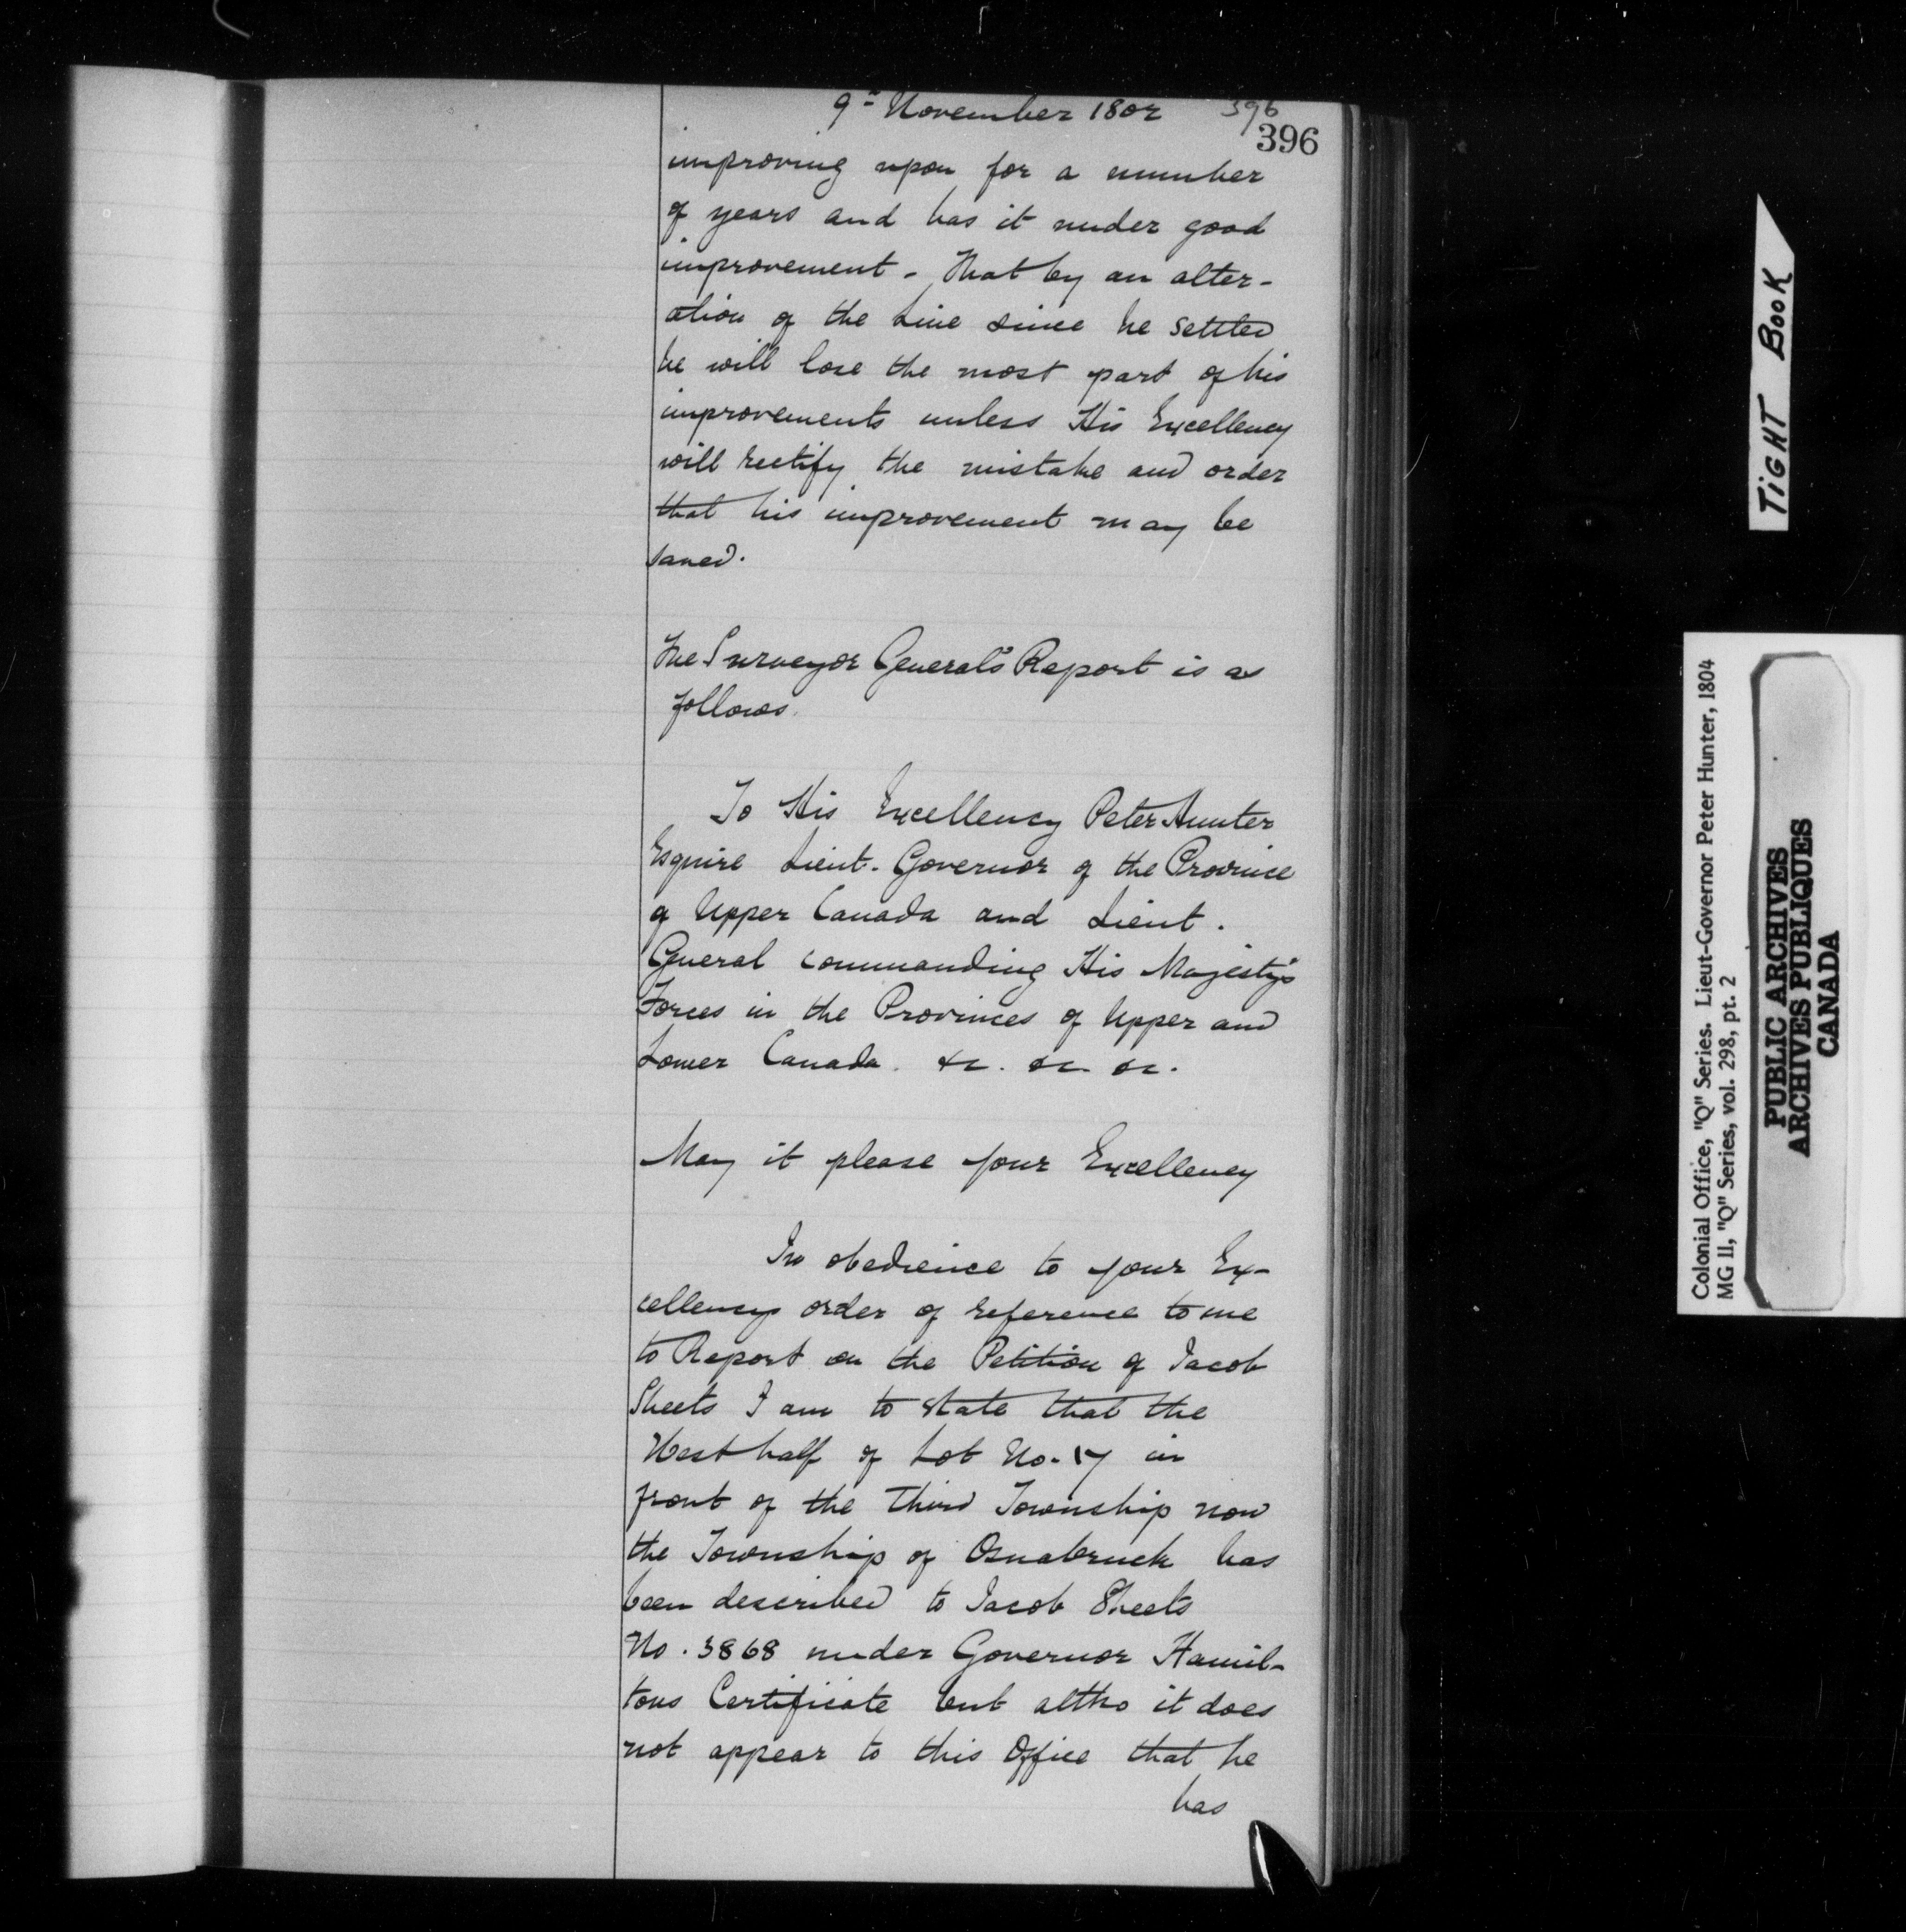 9th November 1802
396
396
improving upon for a number
of years and has it under good
improvement. That by an alter-
ation of the Line since he settled
he will lose the most part of his
improvements unless His Excellency
will rectify the mistake and order
that his improvement may be
saved.
The Surveyor General's Report is as
follows.
To His Excellency Peter Hunter
Esquire Lieut. Governor of the Province
of Upper Canada and Lieut.
General commanding His Majesty's
Forces in the Provinces of Upper and
Lower Canada. &c. &c. &c.
May it please your Excellency
In obedience to your Ex-
cellencys order of reference to me
to Report on the Petition of Jacob
Sheets I am to state that the
West half of Lot No. 17 in
front of the Third Township now
the Township of Osnabruck has
been described to Jacob Sheets
No. 3868 under Governor Hamil-
tons Certificate but altho it does
not appear to this Office that he
has
TIGHT BOOK
Colonial Office, "Q" Series. Lieut-Governor Peter Hunter, 1804
MG II, "Q" Series, vol. 298, pt. 2
PUBLIC ARCHIVES
ARCHIVES PUBLIQUES
CANADA